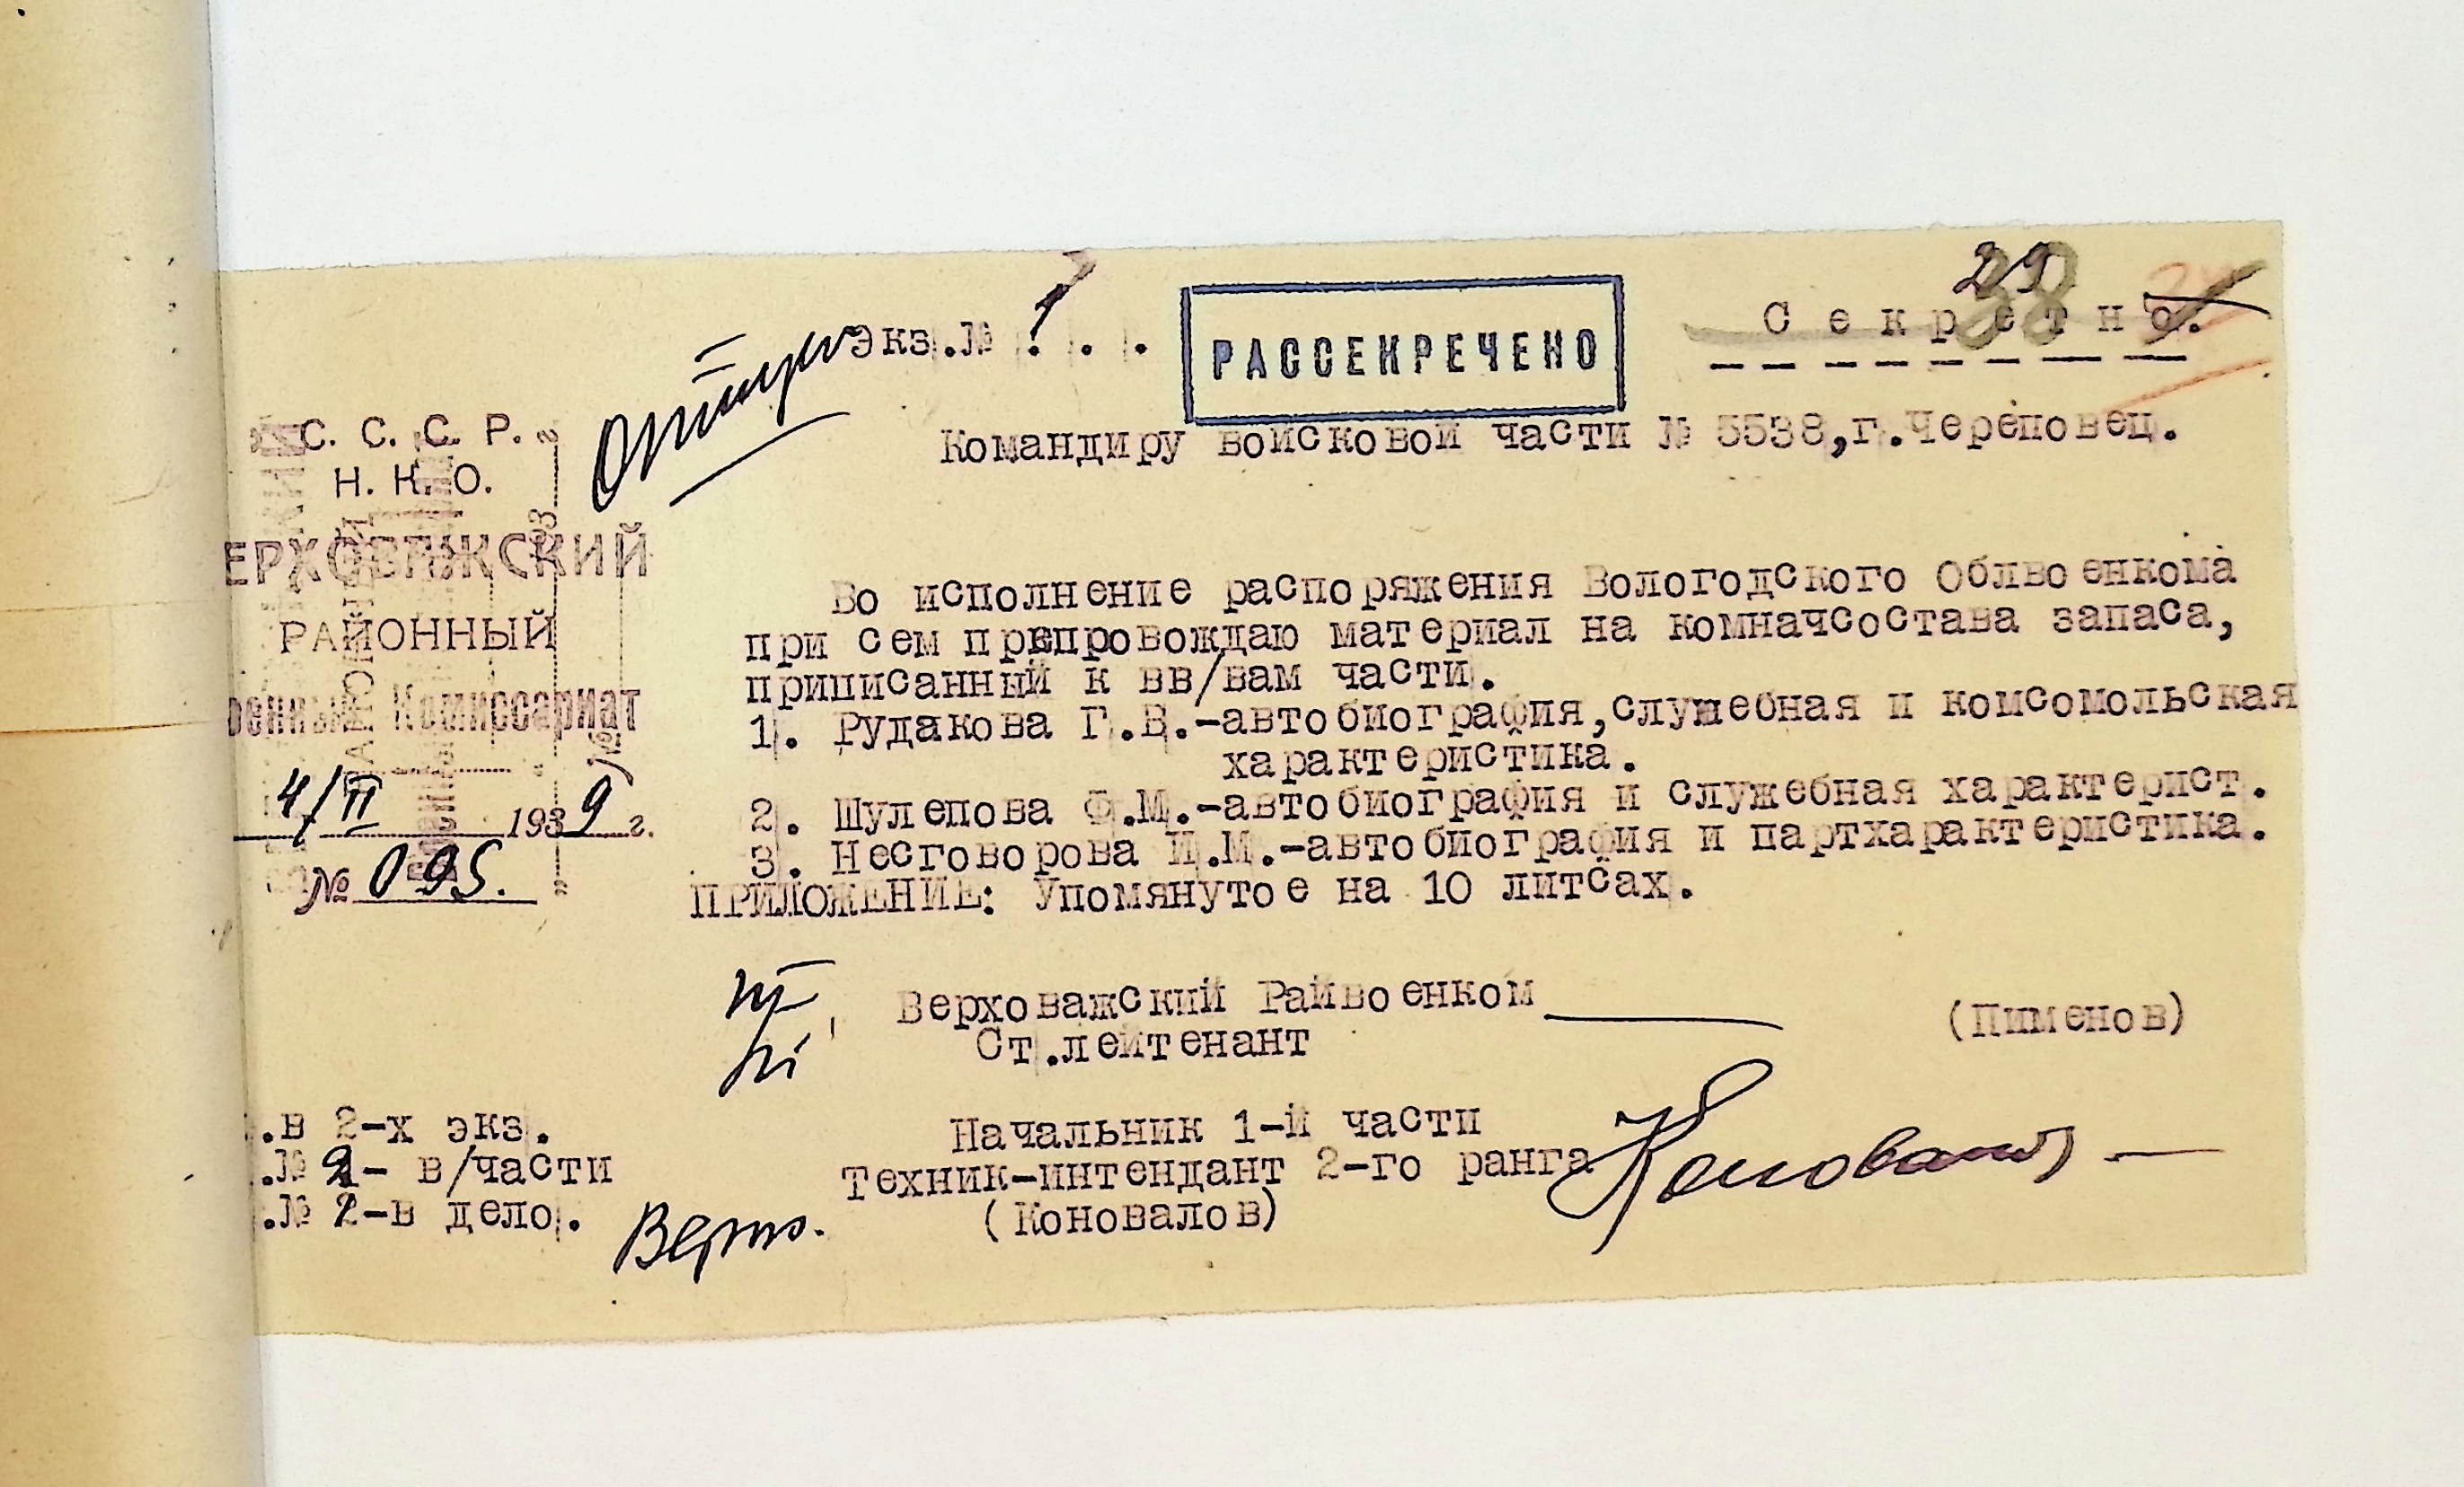 29
38
Секретно.
экз.№ 1 . .
РАССЕКРЕЧЕНО
Командиру войсковой части № 5538,г.Череповец.
С. С. С. Р.
Н. К. О.
ЕРХОВАЖСКИЙ
РАЙОННЫЙ
оенный Комиссариат
4/II 1939 г.
№ 095.
Во исполнение распоряжения Вологодского Облвоенкома
при сем препровождаю материал на комначсостава запаса,
приписанный к вв/вам части.
1. Рудакова Г.В.-автобиография,служебная и комсомольская
характеристика.
2. Шулепова Ф.М.-автобиография и служебная характерист.
3. Несговорова И.М.-автобиография и партхарактеристика.
ПРИЛОЖЕНИЕ: Упомянутое на 10 литсах.
Верховажский Райвоенком (Пименов)
Ст.лейтенант
Начальник 1-й части
Техник-интендант 2-го ранга Коновалов
(Коновалов)
.в 2-х экз.
.№ 1- в/части
.№ 2-в дело.
Верно.